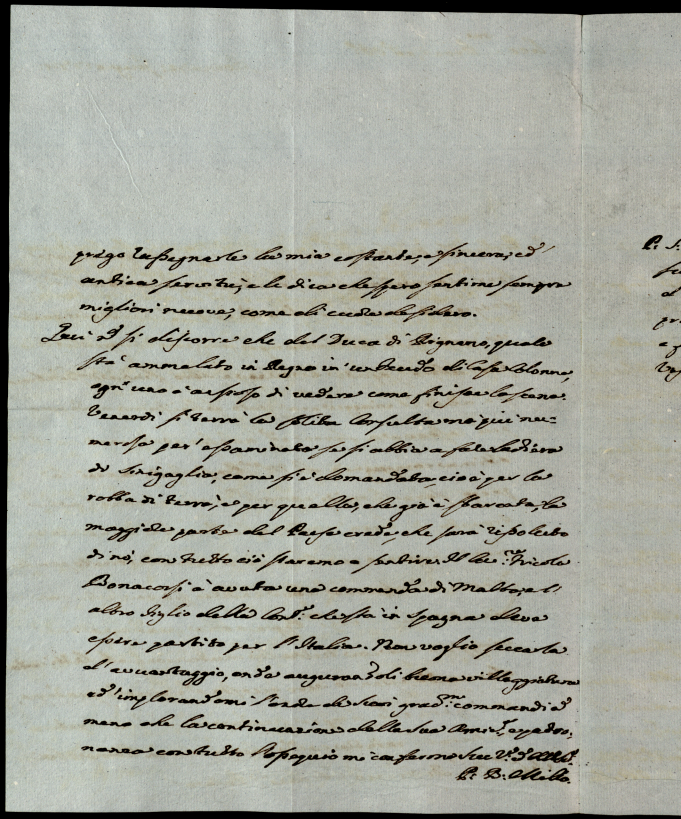 prego rassegnarle la mia costante, e sincera, ed
antica servitù, e le dica che spero sentirne sempre
migliori nuove, come di cuore desidero.
Qui si discorre che del Duca di Rignano, quale
sta ammalato in Regno in un feudo di Casa Colonna,
ogn'uno è ansioso di vedere come finisce la scena.
Venerdì si terrà la solita Consulta ma più nu=
merosa per esaminare se si abbia a fare la fiera
di Sinigaglia, come si è domandata, cioè per la
robba di terra, e per quella, che già è sbarcata; la
maggior parte del Paese crede, che sarà risoluto
di nò, con tutto ciò staremo a sentire. Il Nicola
Bonacorsi à avuta una commenda di Malta, e l'
altro figlio della che sta in Spagna deve
essere partito per l'Italia. Non voglio seccarla
d'avvantaggio, onde augurandoli buona villeggiatura
ed implorandomi l'onore de suoi commandi
meno che la continuazione della sua padro,
nanza con tutto l'ossequio mi confermo
P: B: Millo.
P: S: